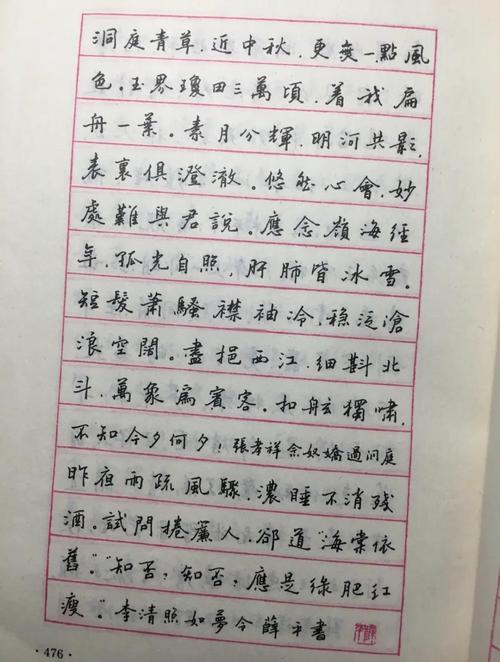 洞庭青草，近中秋，更無一點風
色。玉界瓊田三萬頃，着我扁
舟一葉。素月分輝，明河共影，
表裏俱澄澈。悠然心會，妙
處難與君說。應念嶺海經
年，孤光自照，肝肺皆冰雪。
短髮蕭騷襟袖冷，穩泛滄
浪空闊。盡挹西江，細斟北
斗，萬象為賓客。扣舷獨嘯，
不知今夕何夕！張孝祥念奴嬌過洞庭
昨夜雨疏風驟，濃睡不消殘
酒。試問捲簾人，卻道“海棠依
舊。”“知否，知否，應是綠肥紅
瘦”。李清照如夢令薛平書
·476·